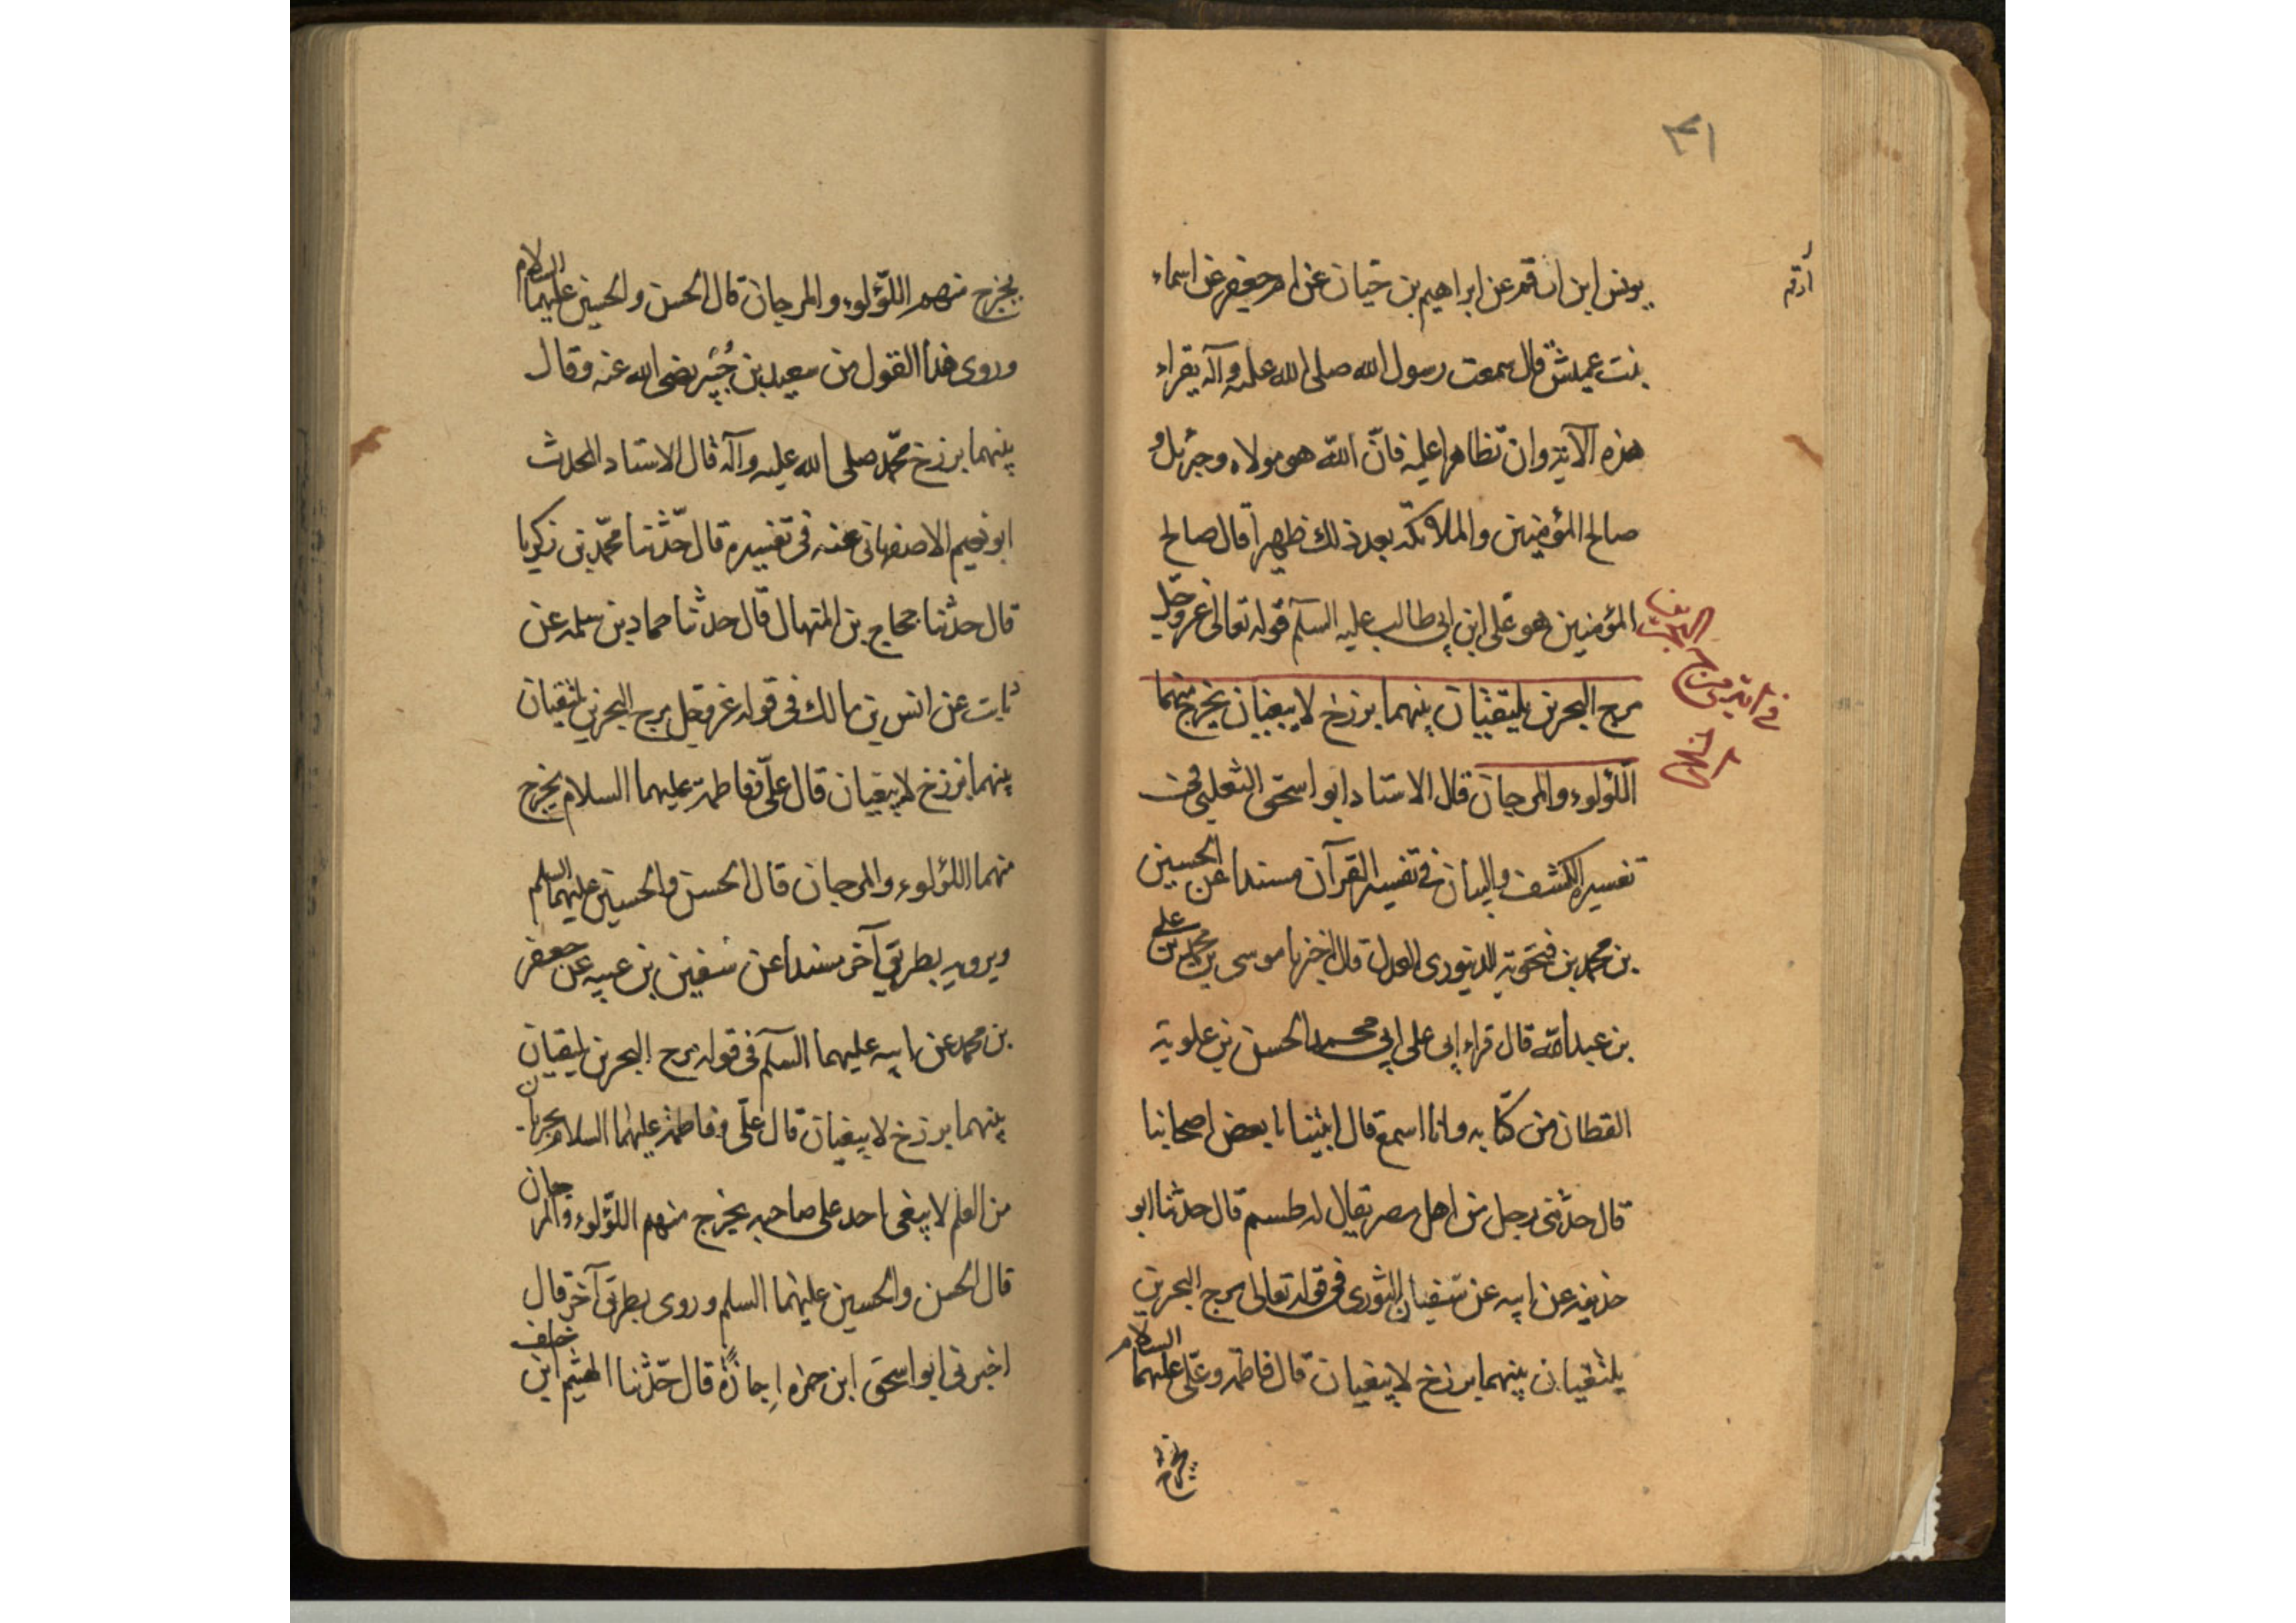 ٣١
يونس ابن ارقم عن ابراهيم بن حيان عن ام جعفر عن اسماء
أرقم
بنت عميش قال سمعت رسول الله صلى الله عليه وآله يقراء
هذه الآية وان تظاهرا عليه فانّ الله هو مولاه وجبرئيل و
صالح المؤمنين والملائكة بعد ذلك ظهيرا قال صالح
المؤمنين هو علي ابن ابي طالب عليه السلم قوله تعالى عز وجل
في
مرج البحرين يلتقيان بينهما برزخ لا يبغيان يخرج منهما
اللؤلوء والمرجان قال الاستاد ابو اسحق الثعلبي في
تفسيره الكشف والبيان في تفسير القرآن مسندا عن الحسين
بن محمد بن فنحويه الدينوري العدل قال اخبرنا موسى بن محمد بن علي
بن عبد الله قال قراء ابي على ابي محمد الحسن بن علوية
القطان من كتابه وانا اسمع قال انبئنا بعض اصحابنا
قال حدثني رجل من اهل مصر يقال له طسم قال حدثنا ابو
حذيفه عن ابيه عن سفيان الثوري في قوله تعالى مرج البحرين
يلتقيان بينهما برزخ لا يبغيان قال فاطمه وعلي عليهما السلام
يخرج
يخرج منهم اللؤلوء والمرجان قال الحسن والحسين عليهما السلام
وروى هذا القول من سعيد بن جُبَير رضى الله عنه وقال
بينهما برزخ محمّد صلى الله عليه وآله قال الاستاد المحدث
ابو نعيم الاصفهاني عنه في تفسيره قال حدّثنا محمّد بن زكريا
قال حدثنا حجاج بن المنهال قال حدثنا حماد بن سلمه عن
ثابت عن انس بن مالك في قوله عز وجل مرج البحرين يلتقيان
بينهما برزخ لا يبغيان قال عليّ وفاطمة عليهما السلام يخرج
منهما اللؤلوء والمرجان قال الحسن والحسين عليهما السلم
ويرويه بطريق آخر مسندا عن سفين بن عيينه عن جعفر
بن محمد عن ابيه عليهما السلم في قوله مرج البحرين يلتقيان
بينهما برزخ لا يبغيان قال عليّ وفاطمة عليهما السلام بحران
من العلم لا يبغي احد على صاحبه يخرج منهم اللؤلوء والمرجان
قال الحسن والحسين عليهما السلم وروى بطريق آخر قال
اخبرني ابو اسحق ابن حمزه اِجازةً قال حدّثنا الهيثم ابن خلف